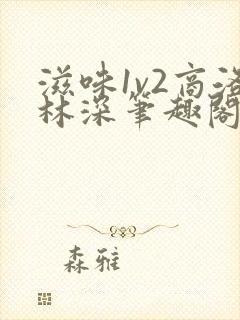 滋味1v2高洛
林深笔趣阁
森雅